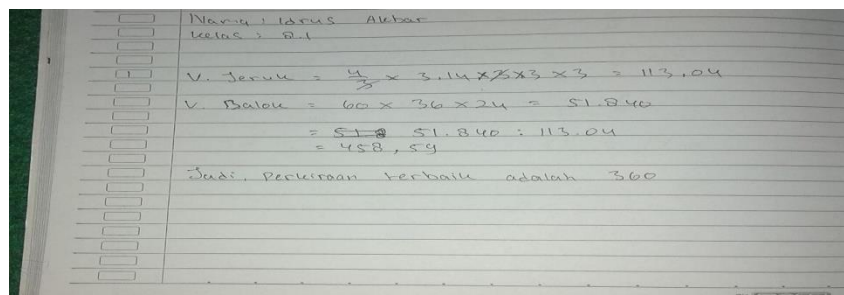 Nama : Idrus Akbar
Kelas : 8.1
1 V. Jeruk = 4/3 × 3.14 × 3 × 3 × 3 = 113,04
V. Balok = 60 × 36 × 24 = 51.840
= 51.840 : 113.04
= 458,59
Jadi, Perkiraan terbaik adalah 360